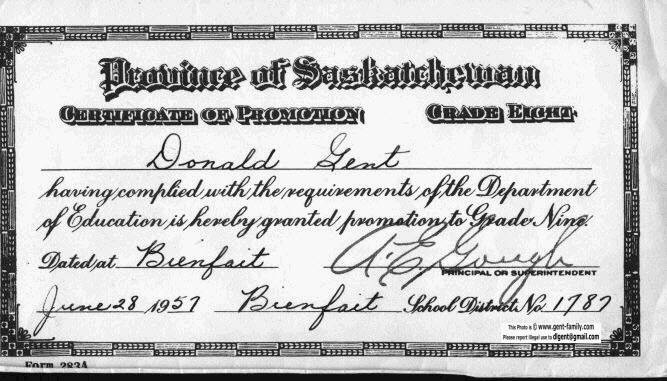 Province of Saskatchewan
CERTIFICATE OF PROMOTION GRADE EIGHT
Donald Gent
having complied with the requirements of the Department
of Education is hereby granted promotion to Grade Nine.
Dated at Bienfait A. E. Gough
PRINCIPAL OR SUPERINTENDENT
June 28 1957 Bienfait School District No. 1787
This Photo is © www.gent-family.com
Please report illegal use to digent@gmail.com
Form 283A